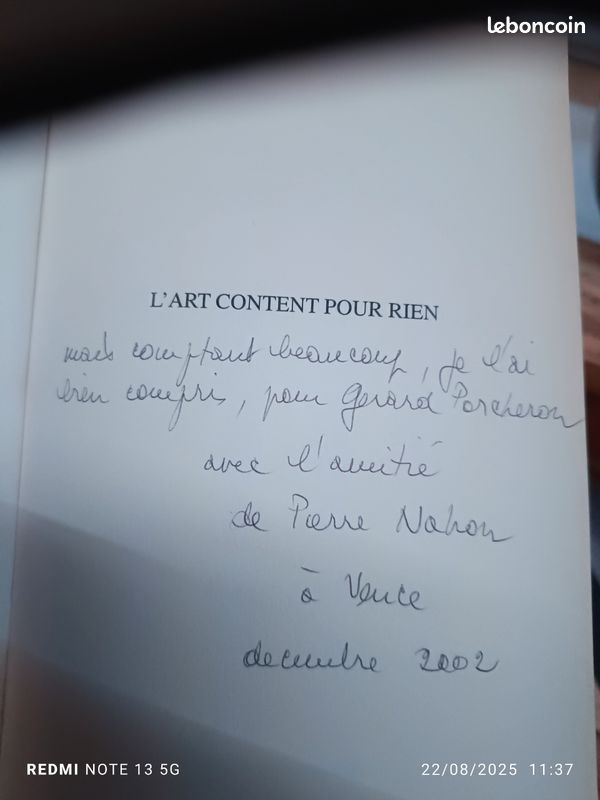 leboncoin
L'ART CONTENT POUR RIEN
mais comptant beaucoup, je l'ai
bien compris, pour Gerard Porcheron
avec l'amitié
de Pierre Nahon
à Vence
decembre 2002
REDMI NOTE 13 5G
22/08/2025 11:37